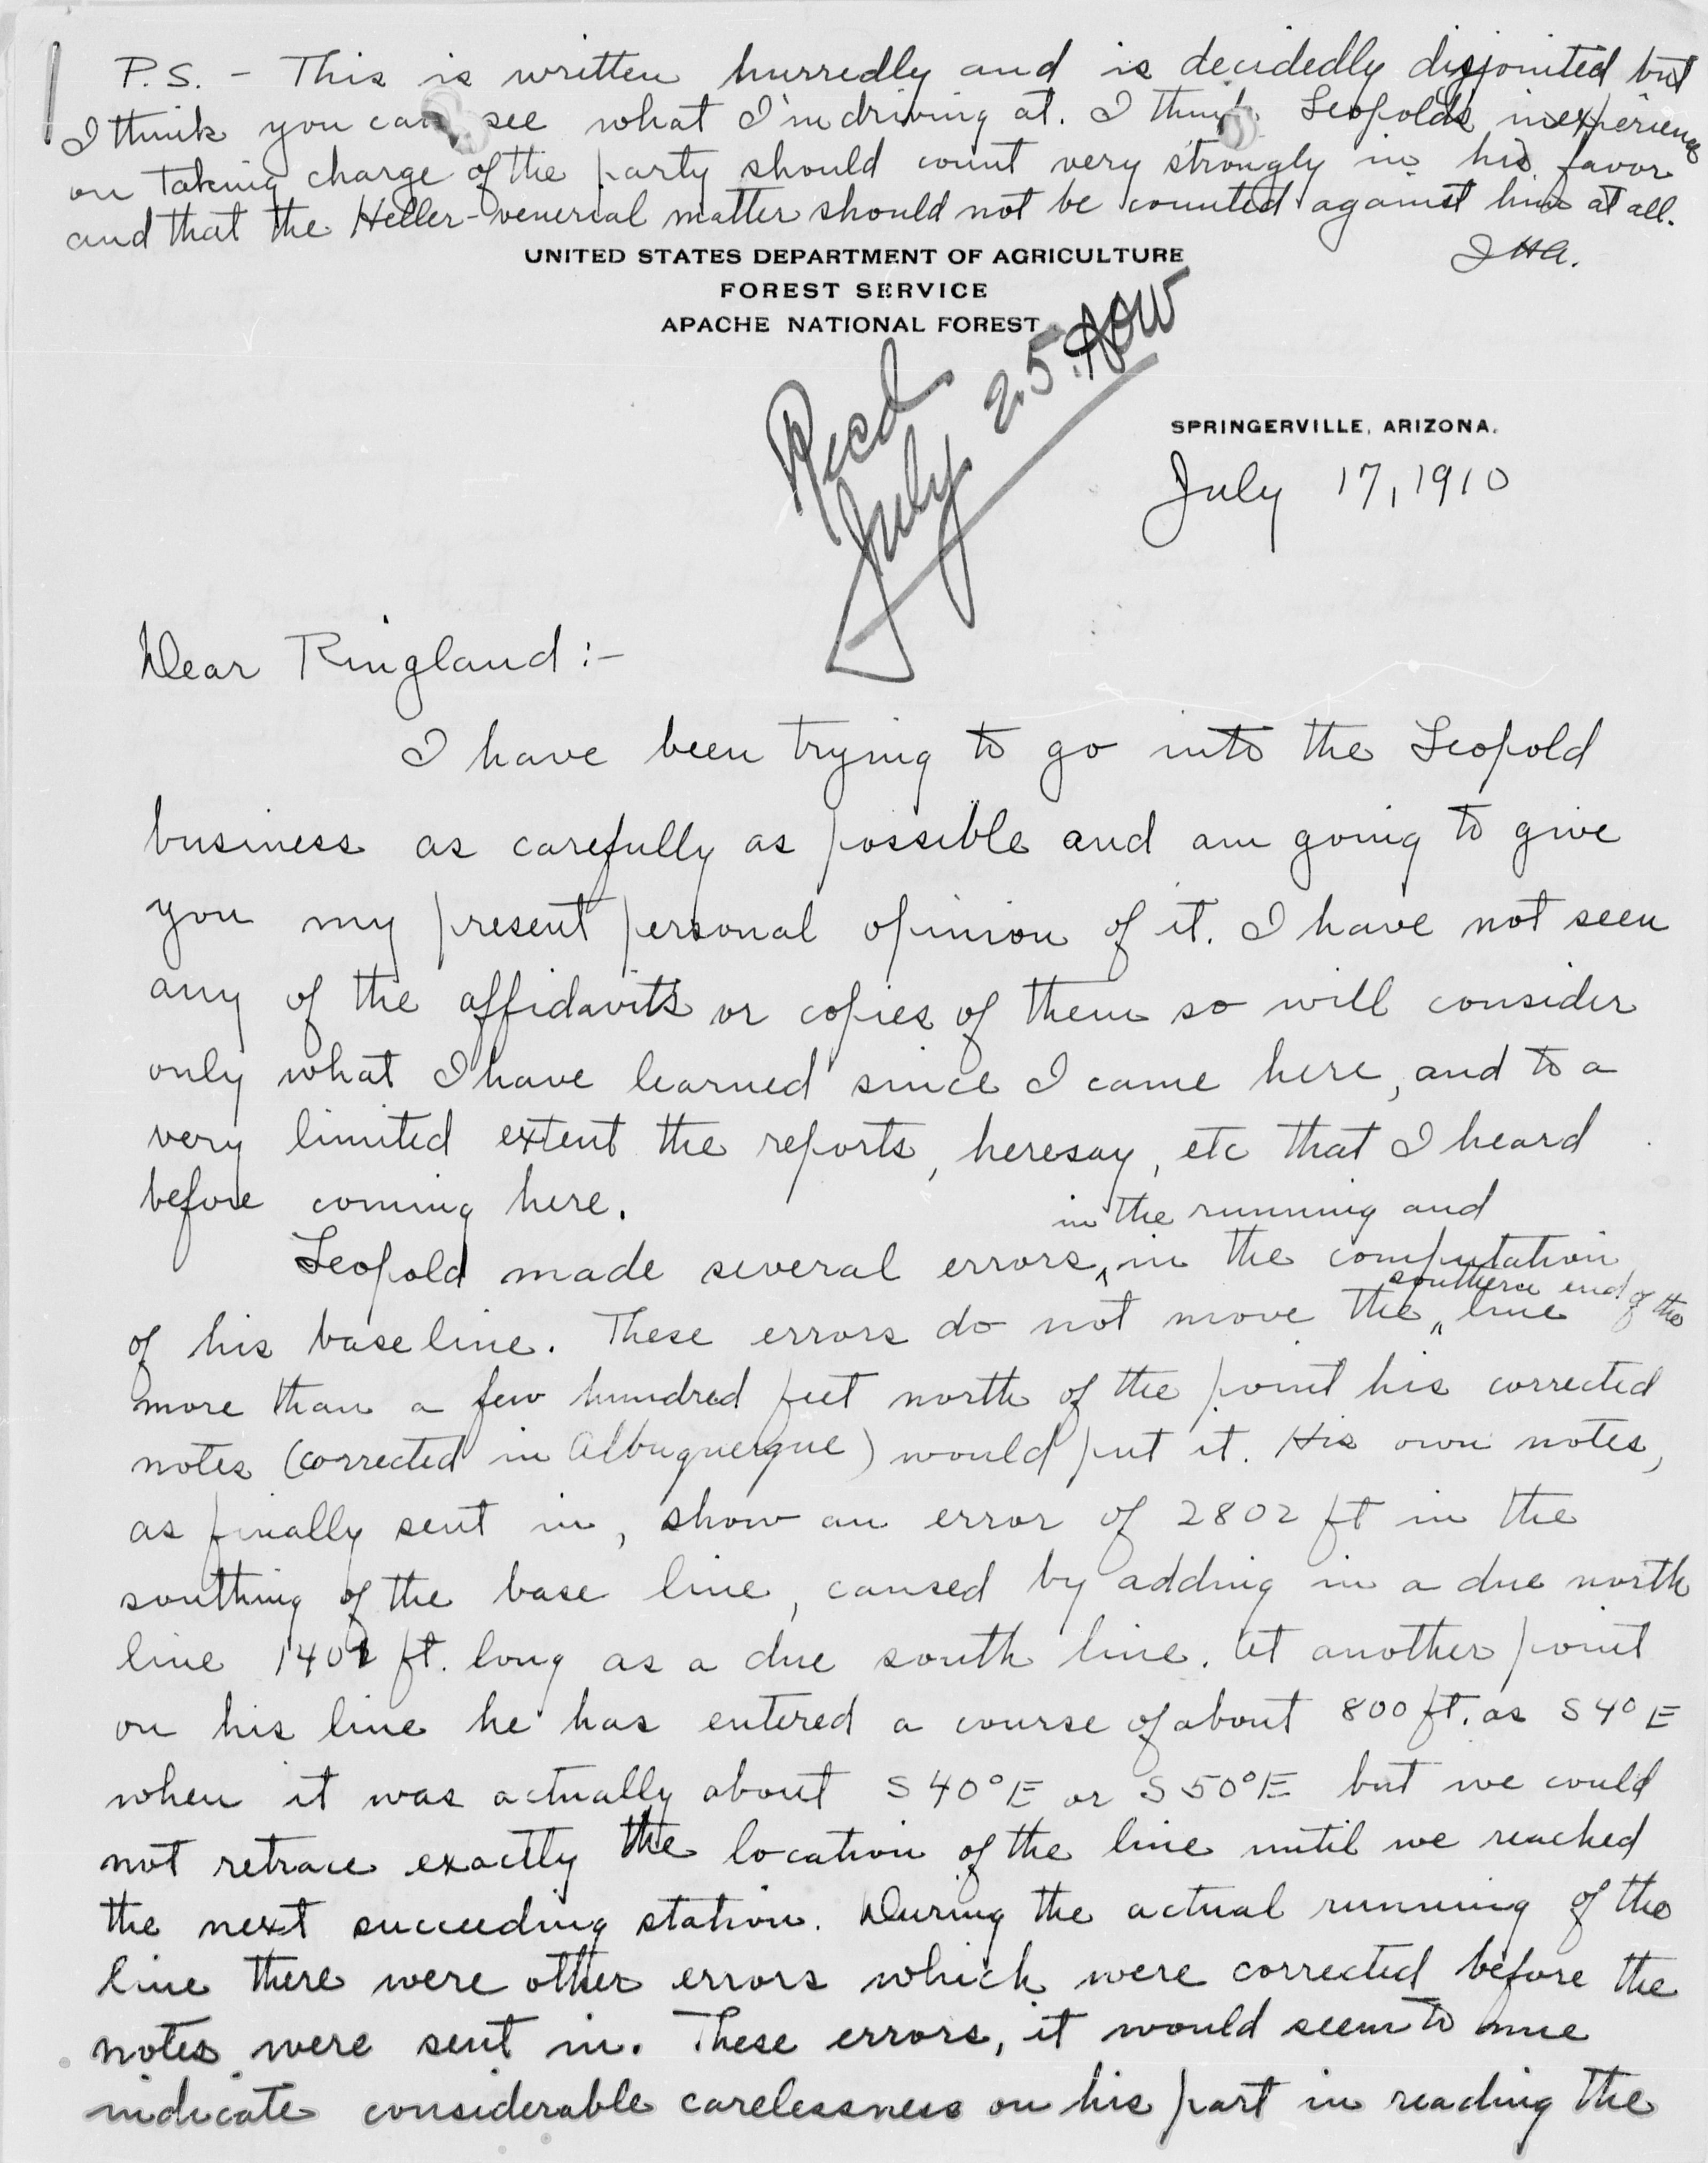 P.S. - This is written hurredly and is decidedly disjointed but
I think you can see what I'm driving at. I think Leopold's inexperience
on taking charge of the party should count very strongly in his favor
and that the Heller-venerial matter should not be counted against him at all.
JHA.
UNITED STATES DEPARTMENT OF AGRICULTURE
FOREST SERVICE
APACHE NATIONAL FOREST
Recd
July 25.
SPRINGERVILLE, ARIZONA.
July 17, 1910
Dear Ringland :-
I have been trying to go into the Leopold
business as carefully as possible and am going to give
you my present personal opinion of it. I have not seen
any of the affidavits or copies of them so will consider
only what I have learned since I came here, and to a
very limited extent the reports, heresay, etc that I heard
before coming here.
in the running and
Leopold made several errors ^ in the computation
southern end of the
of his base line. These errors do not move the " line
more than a few hundred feet north of the point his corrected
notes (corrected in Albuquerque) would put it. His own notes,
as finally sent in, show an error of 2802 ft in the
southing of the base line, caused by adding in a due north
line 1401 ft. long as a due south line. At another point
on his line he has entered a course of about 800 ft. as S 4° E
when it was actually about S 40° E or S 50° E but we could
not retrace exactly the location of the line until we reached
the next succeeding station. During the actual running of the
line there were other errors which were corrected before the
notes were sent in. These errors, it would seem to me
indicate considerable carelessness on his part in reading the